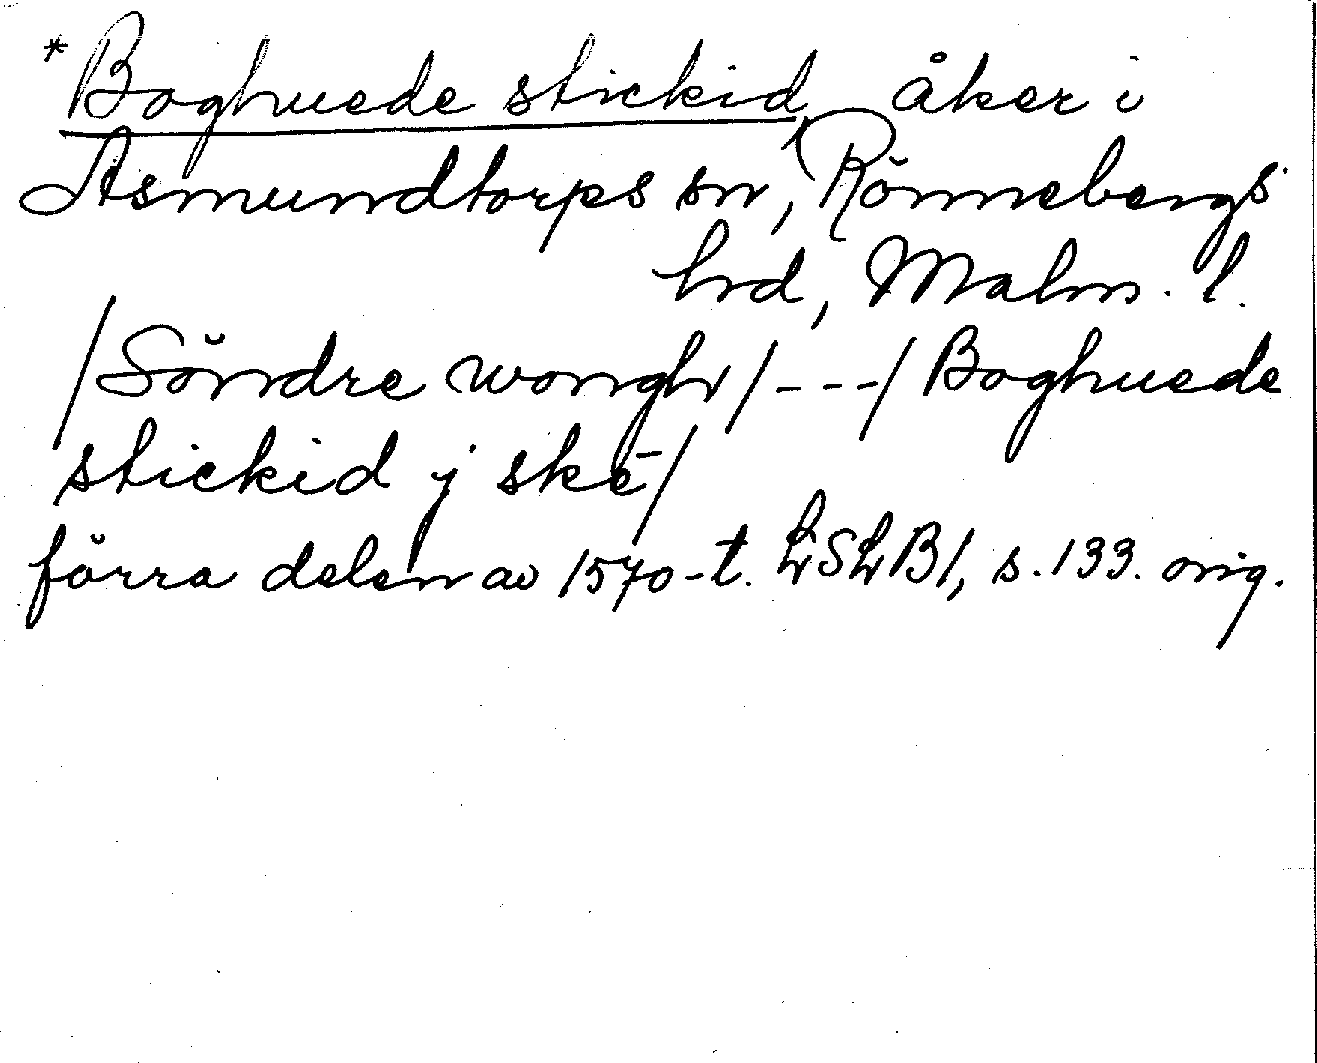 *Boghuede stickid, åker i
Asmundtorps sn, Rönnebergs
hrd, Malm. l.
/Söndre wongh/---/Boghuede
stickid j ske/
förra delen av 1570-t. LSLB1, s. 133. orig.